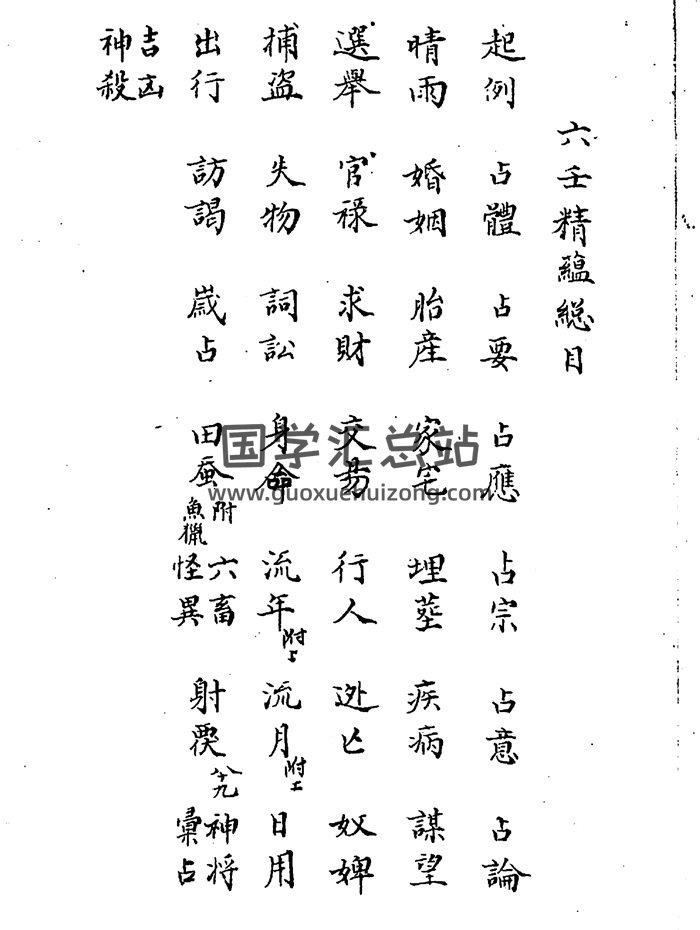 六壬精蘊総目
起例 占體 占要 占應 占宗 占意 占論
晴雨 婚姻 胎産 家宅 埋塟 疾病 謀望
選舉 官祿 求財 交易 行人 迯亡 奴婢
捕盜 失物 詞訟 身命 流年附 流月附 日用
出行 訪謁 歲占 田蚕附魚獵 六畜怪異 射覆 神將彙占
吉凶神殺
国学汇总站
www.guoxuehuizong.com